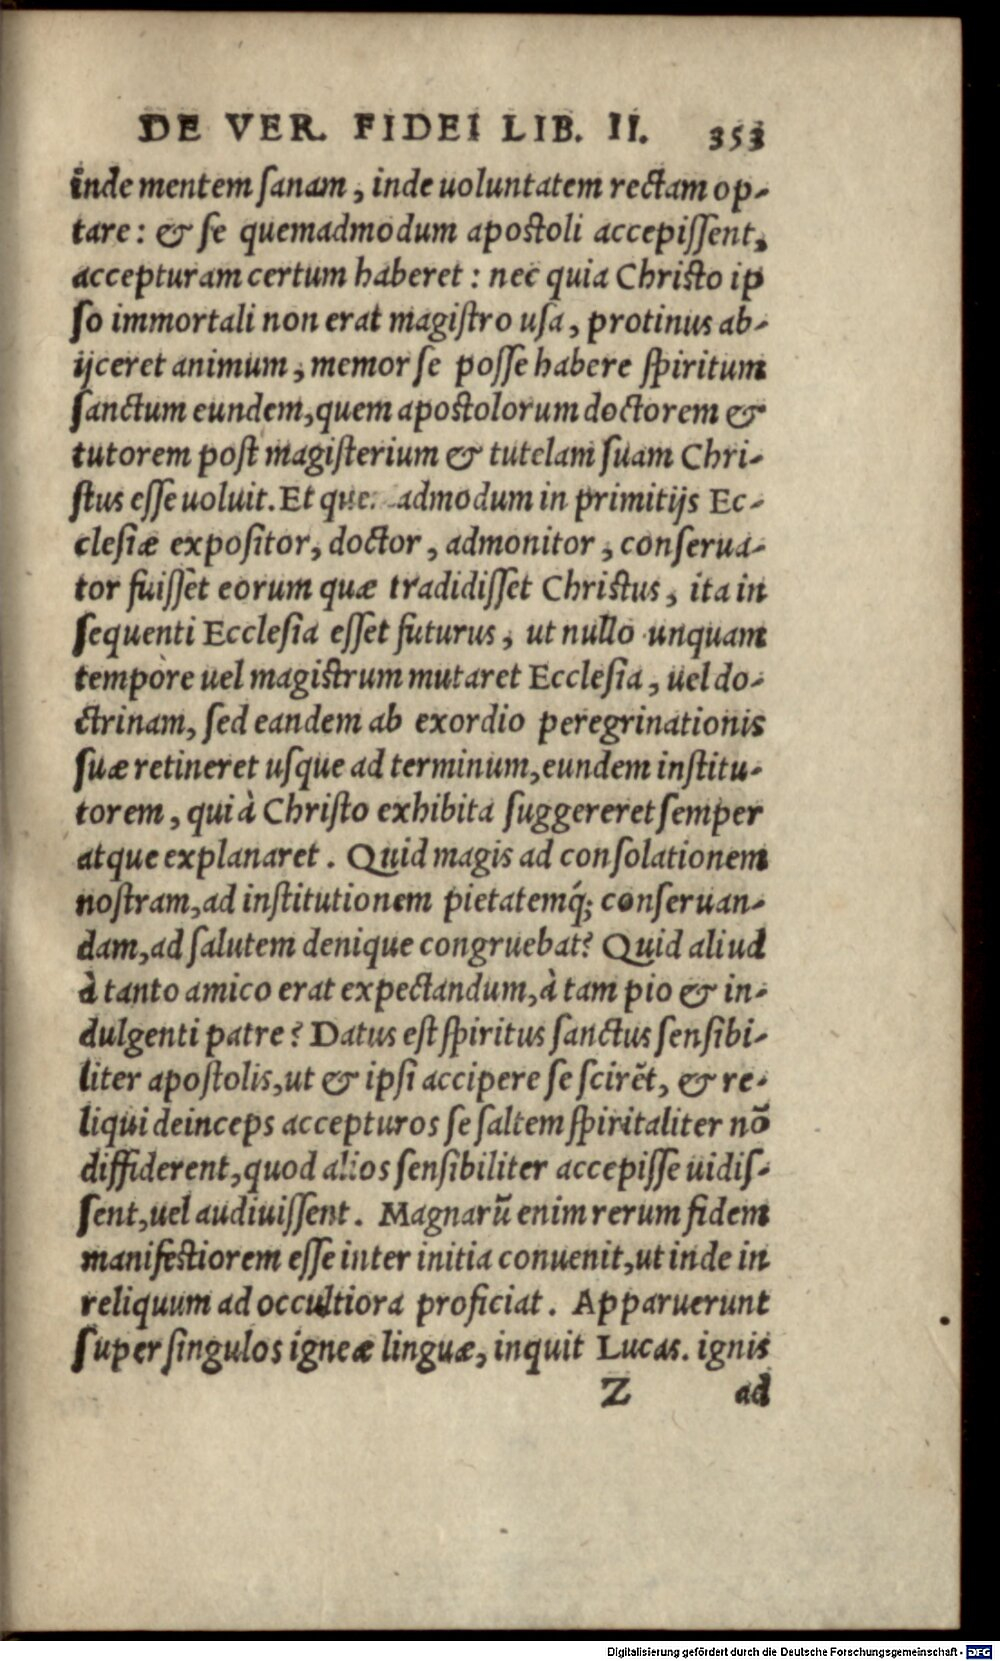 DE VER. FIDEI LIB. II. 353
inde mentem sanam, inde uoluntatem rectam op-
tare: & se quemadmodum apostoli accepissent,
accepturam certum haberet: nec quia Christo ip
so immortali non erat magistro usa, protinus ab-
ijceret animum, memor se posse habere spiritum
sanctum eundem, quem apostolorum doctorem &
tutorem post magisterium & tutelam suam Chri-
stus esse uoluit. Et que. admodum in primitijs Ec-
clesiæ expositor, doctor, admonitor, conserua-
tor fuisset eorum quæ tradidisset Christus, ita in
sequenti Ecclesia esset futurus, ut nullo unquam
tempore uel magistrum mutaret Ecclesia, uel do-
ctrinam, sed eandem ab exordio peregrinationis
suæ retineret usque ad terminum, eundem institu-
torem, qui à Christo exhibita suggereret semper
atque explanaret. Quid magis ad consolationem
nostram, ad institutionem pietatemq́; conseruan-
dam, ad salutem denique congruebat? Quid aliud
à tanto amico erat expectandum, à tam pio & in-
dulgenti patre? Datus est spiritus sanctus sensibi-
liter apostolis, ut & ipsi accipere se scirẽt, & re-
liqui deinceps accepturos se saltem spiritaliter nõ
diffiderent, quod alios sensibiliter accepisse uidis-
sent, uel audiuissent. Magnarũ enim rerum fidem
manifestiorem esse inter initia conuenit, ut inde in
reliquum ad occultiora proficiat. Apparuerunt
super singulos igneæ linguæ, inquit Lucas. ignis
Z ad
Digitalisierung gefördert durch die Deutsche Forschungsgemeinschaft - DFG